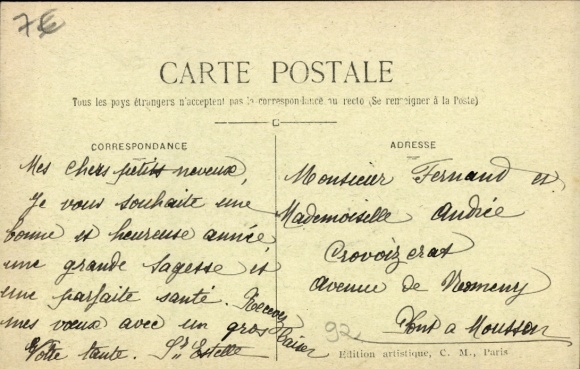 7€
CARTE POSTALE
Tous les pays étrangers n'acceptent pas la correspondance au recto (Se renseigner à la Poste)
CORRESPONDANCE
Mes chers petits neveux,
Je vous souhaite une
bonne et heureuse année,
une grande sagesse et
une parfaite santé. Recevez
mes vœux avec un gros baiser
Votre tante. Sr Estelle
ADRESSE
Monsieur Fernand et
Mademoiselle Andrée
Crovoizerat
Avenue de Nomeny
Pont a Mousson
92
Edition artistique, C. M., Paris